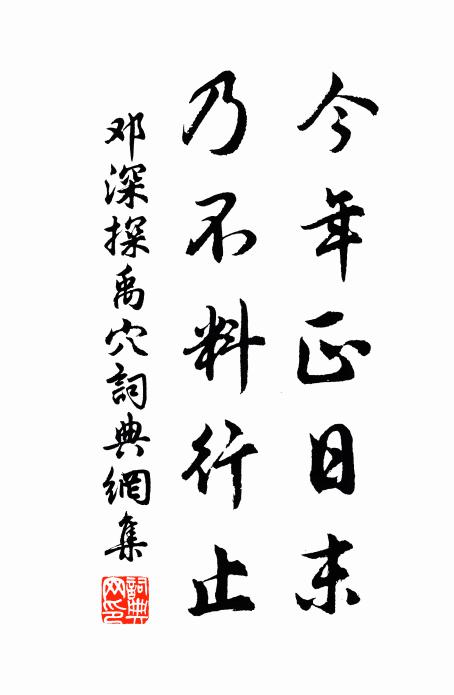 今年正日末
乃不料行止
邓深探禹穴詞典網集
詞典網印